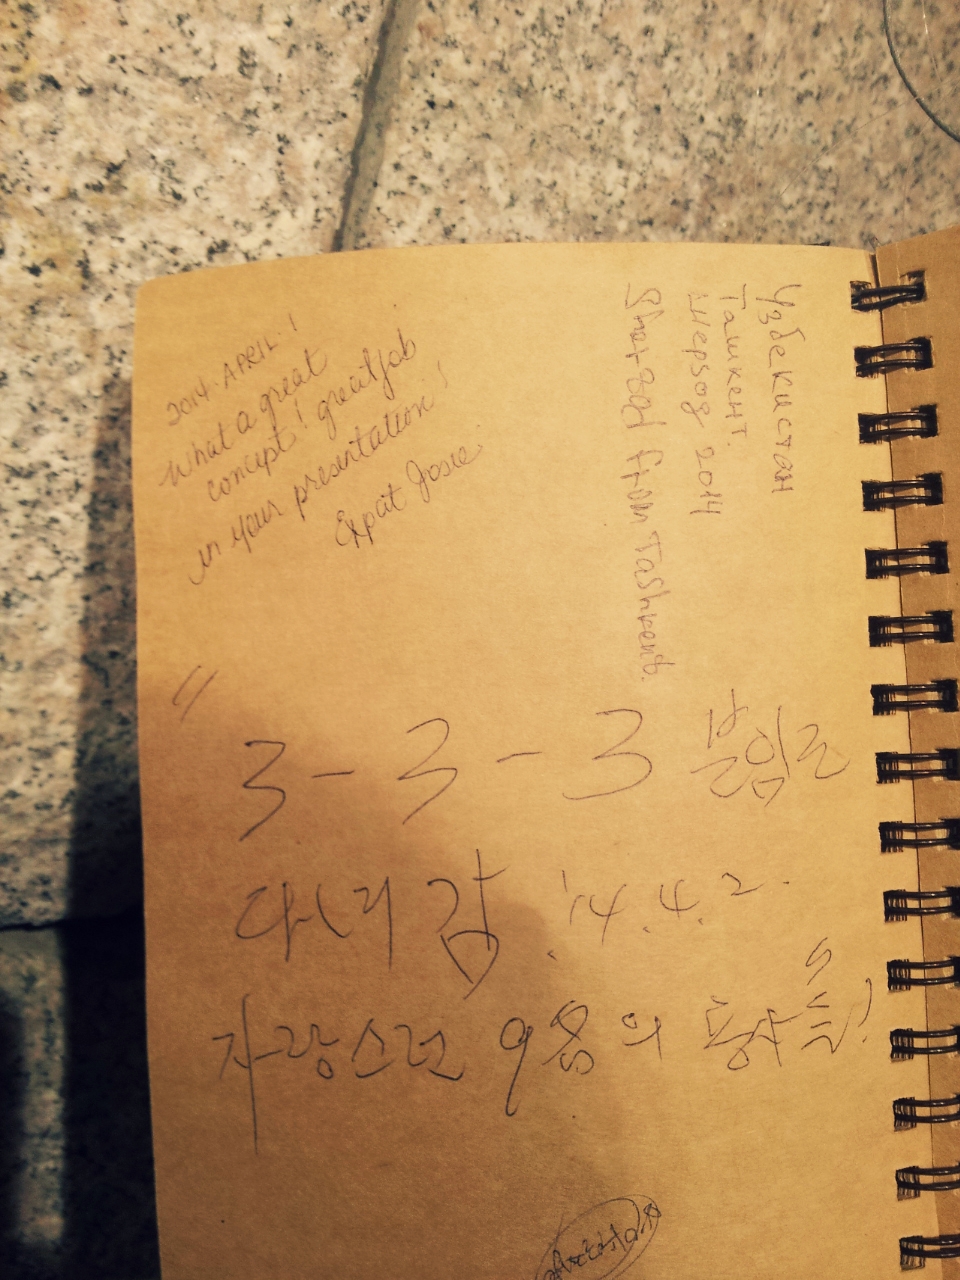 2014. APRIL!
What a great
concept! great job
in your presentation!
Expat Josie
Узбекистан
Ташкент.
Шерзод 2014
Sherzod from Tashkent.
"3-3-3
다녀감 '14.4.2.
자랑스런 9명의 용사들"